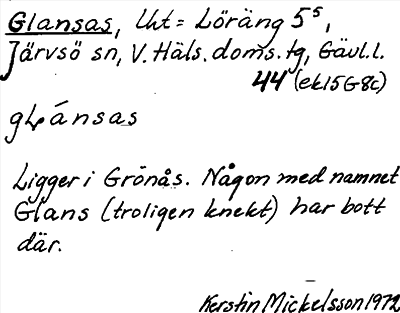 Glansas, Uht = Löräng 5⁵,
Järvsö sn, V. Häls. doms. tg, Gävl. l.
44 (ek 15G8c)
gLánsas
Ligger i Grönås. Någon med namnet
Glans (troligen knekt) har bott
där.
Kerstin Mickelsson 1972